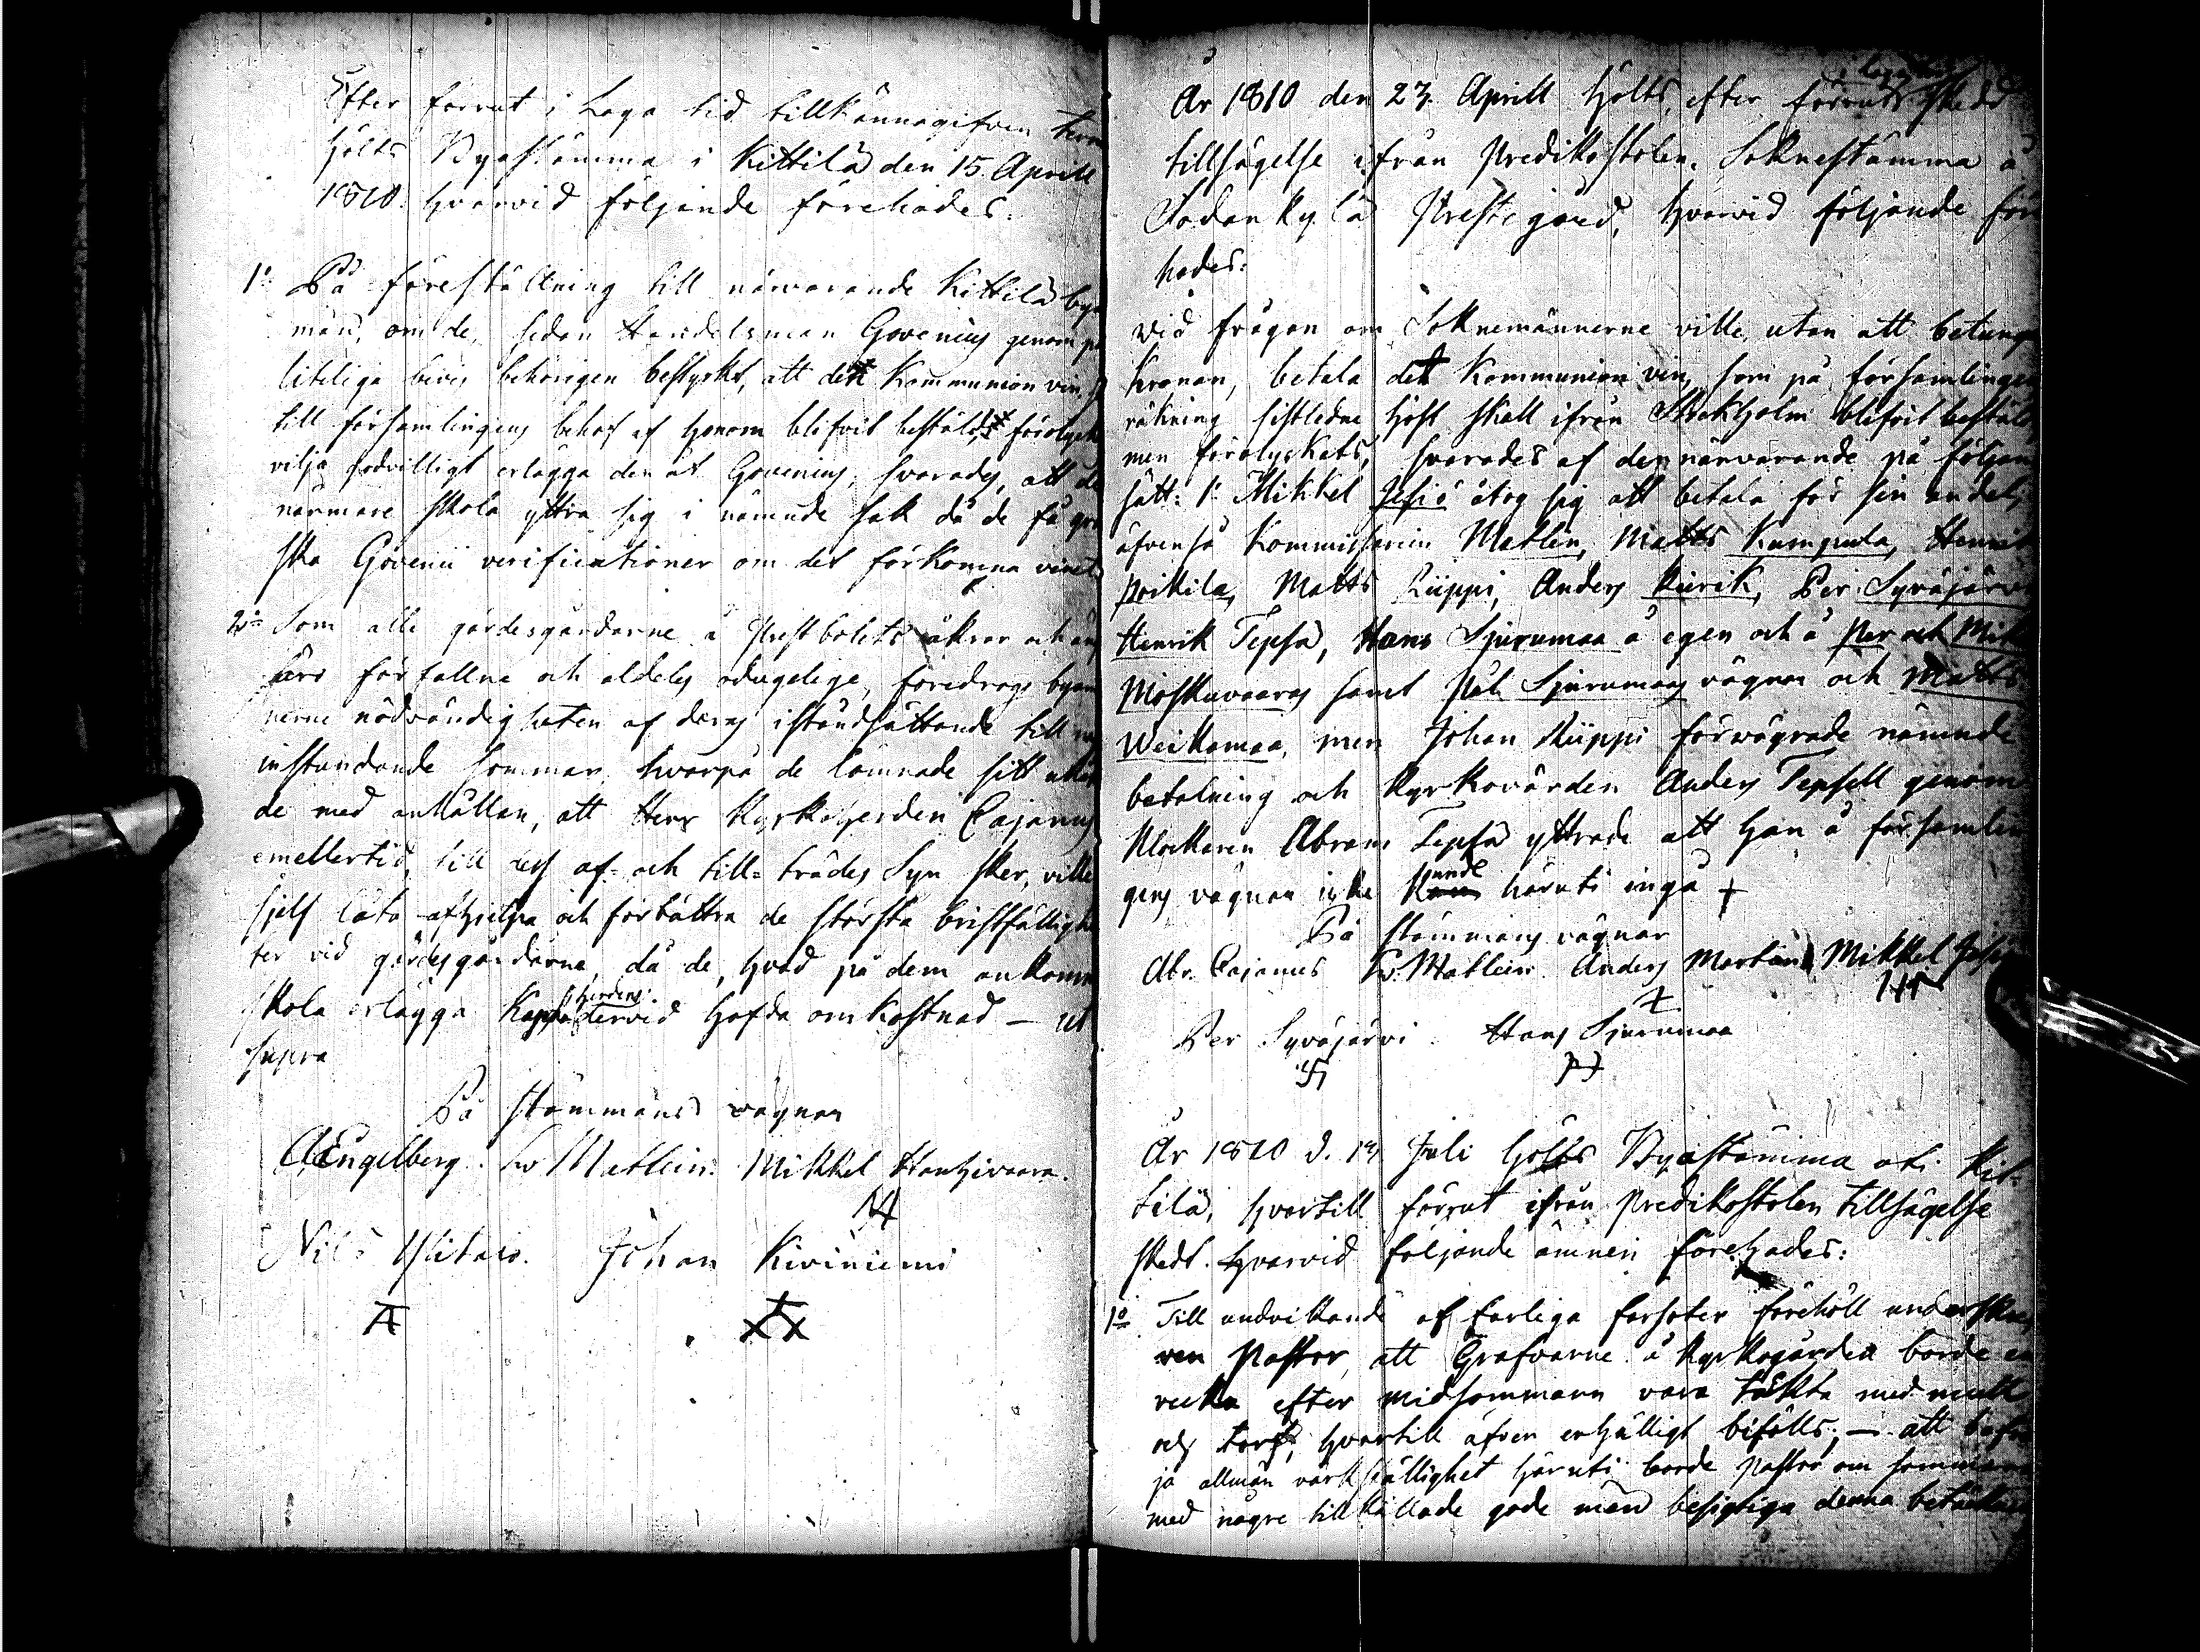 Efter förrut i Laga tid tillkännagifven
hölts Byastämma i Kittilä den 15. Aprill
1810. hvarvid följande förehades.
1o På föreställning till närvarande Kittilä bya
män, om de, sedan Handelsman Govenius genom
liteliga bevis behörigen bestyrkt, att dett Kommunion vin,
till församlingens behof af honom blifvit bestäldt, förolyckats
vilja godvilligt erlägga den åt Govenius, svarades, att de
närmare skola yttra sig i nämnde sak då de få gran
ska Govenii verificationer om det förkomna vinet
2o Som alle gärdesgårdarne å Prestbolets åkrar och äng
äro förfallne och aldeles odugelige, föredrogs byam
nerne nödvändigheten af deras iståndsättande till
instundande sommar, hvarpå de lämnade sitt
de med anhållan, att Herr Kyrkoherden Cajanus
emellertid, till dess af- och till- trädes Syn sker, ville
sjelf låta afhjelpa och förbättra de största bristfällighe
ter vid gärdesgårdarne, då de, hvad på dem ankomm
skola erlägga Kyrkoherdens dervid hafda omkostnad — ut
supra
På stämmans vägnar
A Engelberg. Mathein. Mikkel Hanhivaara.
Nils Ylitalo. Johan Kiviniemi
År 1810 den 23. Aprill hölts, efter förrut i laga tid skedd
tillsägelse ifrån Predikostolen, Soknestämma å
Sodankylä Prestegård, hvarvid följande före
hades:
Vid frågan om Soknemännerne ville, utan att betunga
Kronan, betala det Kommunion vin, som på församlingens
räkning sistledne höst skall ifrån Stockholm blifvit bestäld,
men förolyckats, svarades af den närvarande på följan
sätt: 1o Mikkel Jesiö åtog sig att betala för sin andel,
äfvenså Kommissarien Matlin, Matts Kumpula, Henrik
Postila, Matts Riippi, Anders Kiörik, Per Syväjärvi
Henrik Tepsa, Hans Sjurumaa å egen och å Per och Mik
Moskuvaaras samt Påhl Sjurumaas vägnar och Matts
Weikamaa, men Johan Riippi förvägrade nämnde
betalning och Kyrkovärden Anders Tepsell genom
Klockaren Abram Tepsa yttrade att han å församlin
gens vägnar icke kunde häruti ingå +
På stämmans vägnar
Abr. Cajanus Mathein Anders Martin Mikkel Jesiö
Per Syväjärvi Hans Sjurumaa
År 1810 d. Juli hölts Byastämma uti Kit-
tilä, hvartill förrut ifrån Predikostolen tillsägelse
skedt. hvarvid följande ämnen förehades:
1o Till undvikande af farliga farsoter föreholl underskre
ven Pastor, att Grafvarne å Kyrkogården borde en
vecka efter midsommaren vara täkta med mull
och torf, hvartill äfven enhälligt bifölls; — att
ja allmän värkställighet häruti borde Pastor om sommaren
med några tillkallade gode män besigtiga denna